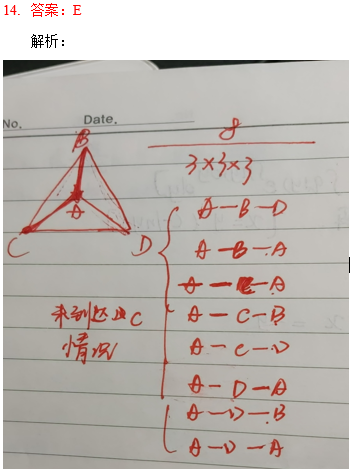 14. 答案：E
解析：
No.
Date.
8
3×3×3
B
A
C
D
A-B-D
A-B-A
A-C-A
A-C-B
A-C-D
A-D-A
A-D-B
A-D-A
未到达过C
情况